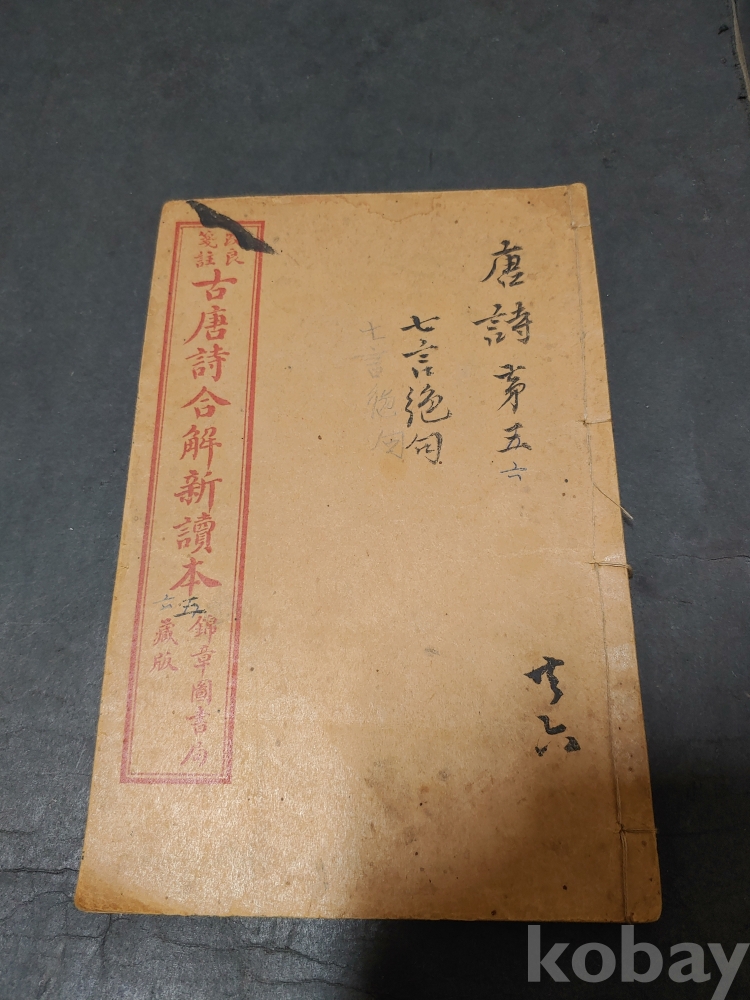 唐詩第五
六
七言絶句
七言絶句
六
改良
箋註
古唐詩合解新讀本
五
六
錦章圖書局
藏版
kobay